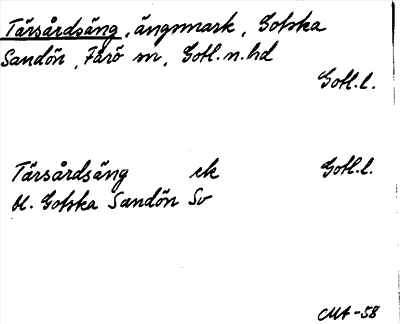 Tärsårdsäng, ängsmark, Gotska
Sandön, Fårö sn, Gotl. n. hd
Gotl.l.
Tärsårdsäng ek Gotl.l.
bl. Gotska Sandön Sv
MA-58